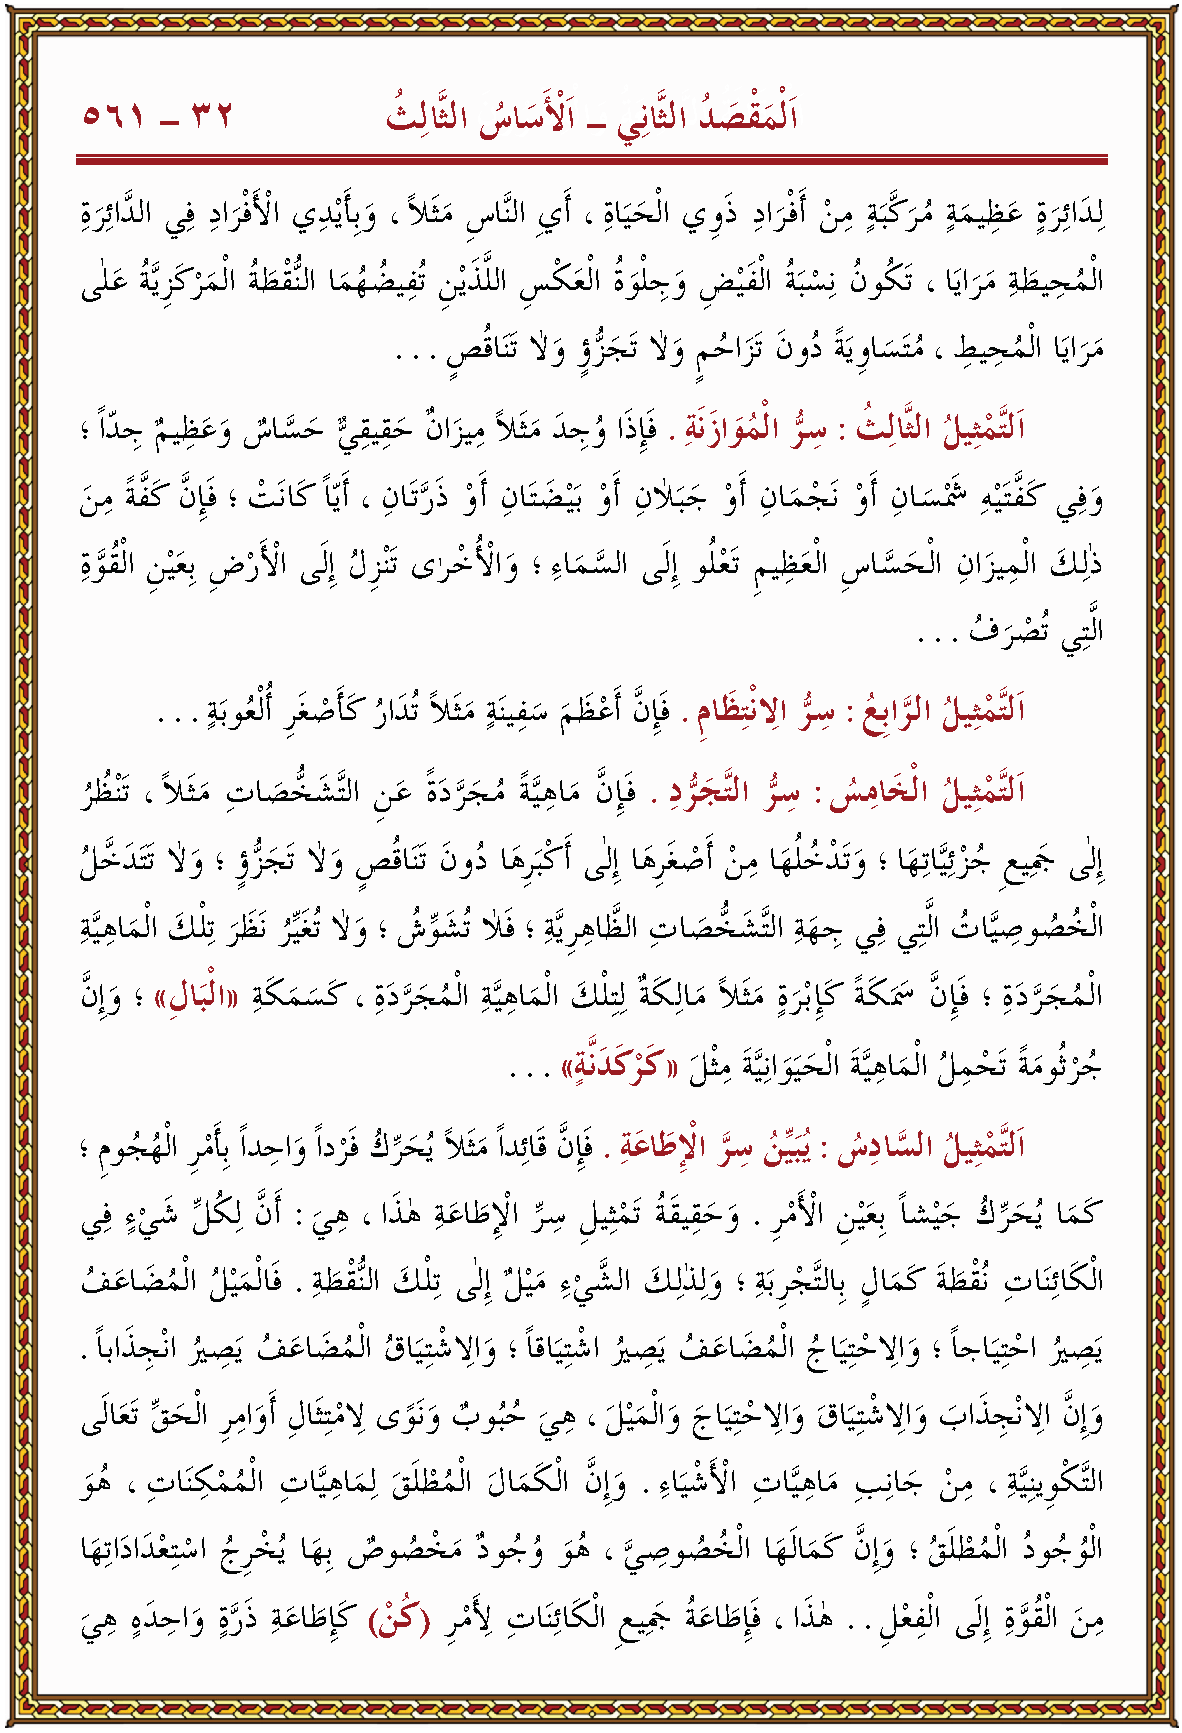 اَلْمَقْصَدُ الثَّانِي ـ اَلْأَسَاسُ الثَّالِثُ ٣٢ ـ ٥٦١
لِدَائِرَةٍ عَظِيمَةٍ مُرَكَّبَةٍ مِنْ أَفْرَادِ ذَوِي الْحَيَاةِ ، أَيِ النَّاسِ مَثَلاً ، وَبِأَيْدِي الْأَفْرَادِ فِي الدَّائِرَةِ
الْمُحِيطَةِ مَرَايَا ، تَكُونُ نِسْبَةُ الْفَيْضِ وَجِلْوَةُ الْعَكْسِ اللَّذَيْنِ تُفِيضُهُمَا النُّقْطَةُ الْمَرْكَزِيَّةُ عَلٰى
مَرَايَا الْمُحِيطِ ، مُتَسَاوِيَةً دُونَ تَزَاحُمٍ وَلاٰ تَجَزُّؤٍ وَلاٰ تَنَاقُصٍ . . .
اَلتَّمْثِيلُ الثَّالِثُ : سِرُّ الْمُوَازَنَةِ . فَإِذَا وُجِدَ مَثَلاً مِيزَانٌ حَقِيقِيٌّ حَسَّاسٌ وَعَظِيمٌ جِدّاً ؛
وَفِي كَفَّتَيْهِ شَمْسَانِ أَوْ نَجْمَانِ أَوْ جَبَلاٰنِ أَوْ بَيْضَتَانِ أَوْ ذَرَّتَانِ ، أَيّاً كَانَتْ ؛ فَإِنَّ كَفَّةً مِنَ
ذٰلِكَ الْمِيزَانِ الْحَسَّاسِ الْعَظِيمِ تَعْلُو إِلَى السَّمَاءِ ؛ وَالْأُخْرٰى تَنْزِلُ إِلَى الْأَرْضِ بِعَيْنِ الْقُوَّةِ
الَّتِي تُصْرَفُ . . .
اَلتَّمْثِيلُ الرَّابِعُ : سِرُّ الاِنْتِظَامِ . فَإِنَّ أَعْظَمَ سَفِينَةٍ مَثَلاً تُدَارُ كَأَصْغَرِ أُلْعُوبَةٍ . . .
اَلتَّمْثِيلُ الْخَامِسُ : سِرُّ التَّجَرُّدِ . فَإِنَّ مَاهِيَّةً مُجَرَّدَةً عَنِ التَّشَخُّصَاتِ مَثَلاً ، تَنْظُرُ
إِلٰى جَمِيعِ جُزْئِيَّاتِهَا ؛ وَتَدْخُلُهَا مِنْ أَصْغَرِهَا إِلٰى أَكْبَرِهَا دُونَ تَنَاقُصٍ وَلاٰ تَجَزُّؤٍ ؛ وَلاٰ تَتَدَخَّلُ
الْخُصُوصِيَّاتُ الَّتِي فِي جِهَةِ التَّشَخُّصَاتِ الظَّاهِرِيَّةِ ؛ فَلاٰ تُشَوِّشُ ؛ وَلاٰ تُغَيِّرُ نَظَرَ تِلْكَ الْمَاهِيَّةِ
الْمُجَرَّدَةِ ؛ فَإِنَّ سَمَكَةً كَإِبْرَةٍ مَثَلاً مَالِكَةٌ لِتِلْكَ الْمَاهِيَّةِ الْمُجَرَّدَةِ ، كَسَمَكَةِ «الْبَالِ» ؛ وَإِنَّ
جُرْثُومَةً تَحْمِلُ الْمَاهِيَّةَ الْحَيَوَانِيَّةَ مِثْلَ «كَرْكَدَنَّةٍ» . . .
اَلتَّمْثِيلُ السَّادِسُ : يُبَيِّنُ سِرَّ الْإِطَاعَةِ . فَإِنَّ قَائِداً مَثَلاً يُحَرِّكُ فَرْداً وَاحِداً بِأَمْرِ الْهُجُومِ ؛
كَمَا يُحَرِّكُ جَيْشاً بِعَيْنِ الْأَمْرِ . وَحَقِيقَةُ تَمْثِيلِ سِرِّ الْإِطَاعَةِ هٰذَا ، هِيَ : أَنَّ لِكُلِّ شَيْءٍ فِي
الْكَائِنَاتِ نُقْطَةَ كَمَالٍ بِالتَّجْرِبَةِ ؛ وَلِذٰلِكَ الشَّيْءِ مَيْلٌ إِلٰى تِلْكَ النُّقْطَةِ . فَالْمَيْلُ الْمُضَاعَفُ
يَصِيرُ احْتِيَاجاً ؛ وَالاِحْتِيَاجُ الْمُضَاعَفُ يَصِيرُ اشْتِيَاقاً ؛ وَالاِشْتِيَاقُ الْمُضَاعَفُ يَصِيرُ انْجِذَاباً .
وَإِنَّ الاِنْجِذَابَ وَالاِشْتِيَاقَ وَالاِحْتِيَاجَ وَالْمَيْلَ ، هِيَ حُبُوبٌ وَنَوًى لِامْتِثَالِ أَوَامِرِ الْحَقِّ تَعَالَى
التَّكْوِينِيَّةِ ، مِنْ جَانِبِ مَاهِيَّاتِ الْأَشْيَاءِ . وَإِنَّ الْكَمَالَ الْمُطْلَقَ لِمَاهِيَّاتِ الْمُمْكِنَاتِ ، هُوَ
الْوُجُودُ الْمُطْلَقُ ؛ وَإِنَّ كَمَالَهَا الْخُصُوصِيَّ ، هُوَ وُجُودٌ مَخْصُوصٌ بِهَا يُخْرِجُ اسْتِعْدَادَاتِهَا
مِنَ الْقُوَّةِ إِلَى الْفِعْلِ . . هٰذَا ، فَإِطَاعَةُ جَمِيعِ الْكَائِنَاتِ لِأَمْرِ (كُنْ) كَإِطَاعَةِ ذَرَّةٍ وَاحِدَهٍ هِيَ